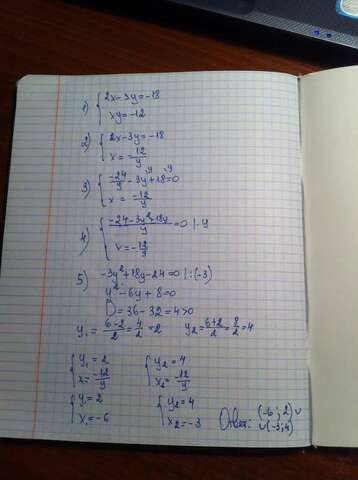 1) { 2x-3y=-18
xy=-12
2) { 2x-3y=-18
x=-12/y
3) { -24/y -3y^y +18^y =0
x = -12/y
4) { (-24-3y²+18y)/y =0 |·y
x=-12/y
5) -3y²+18y-24=0 |:(-3)
y²-6y+8=0
D=36-32=4>0
y₁=(6-2)/2=4/2=2 y₂=(6+2)/2=8/2=4
{ y₁=2 { y₂=4
x₁=-12/y x₂=-12/y
{ y₁=2 { y₂=4
x₁=-6 x₂=-3
Ответ: (-6;2) ∨
∪(-3;4)